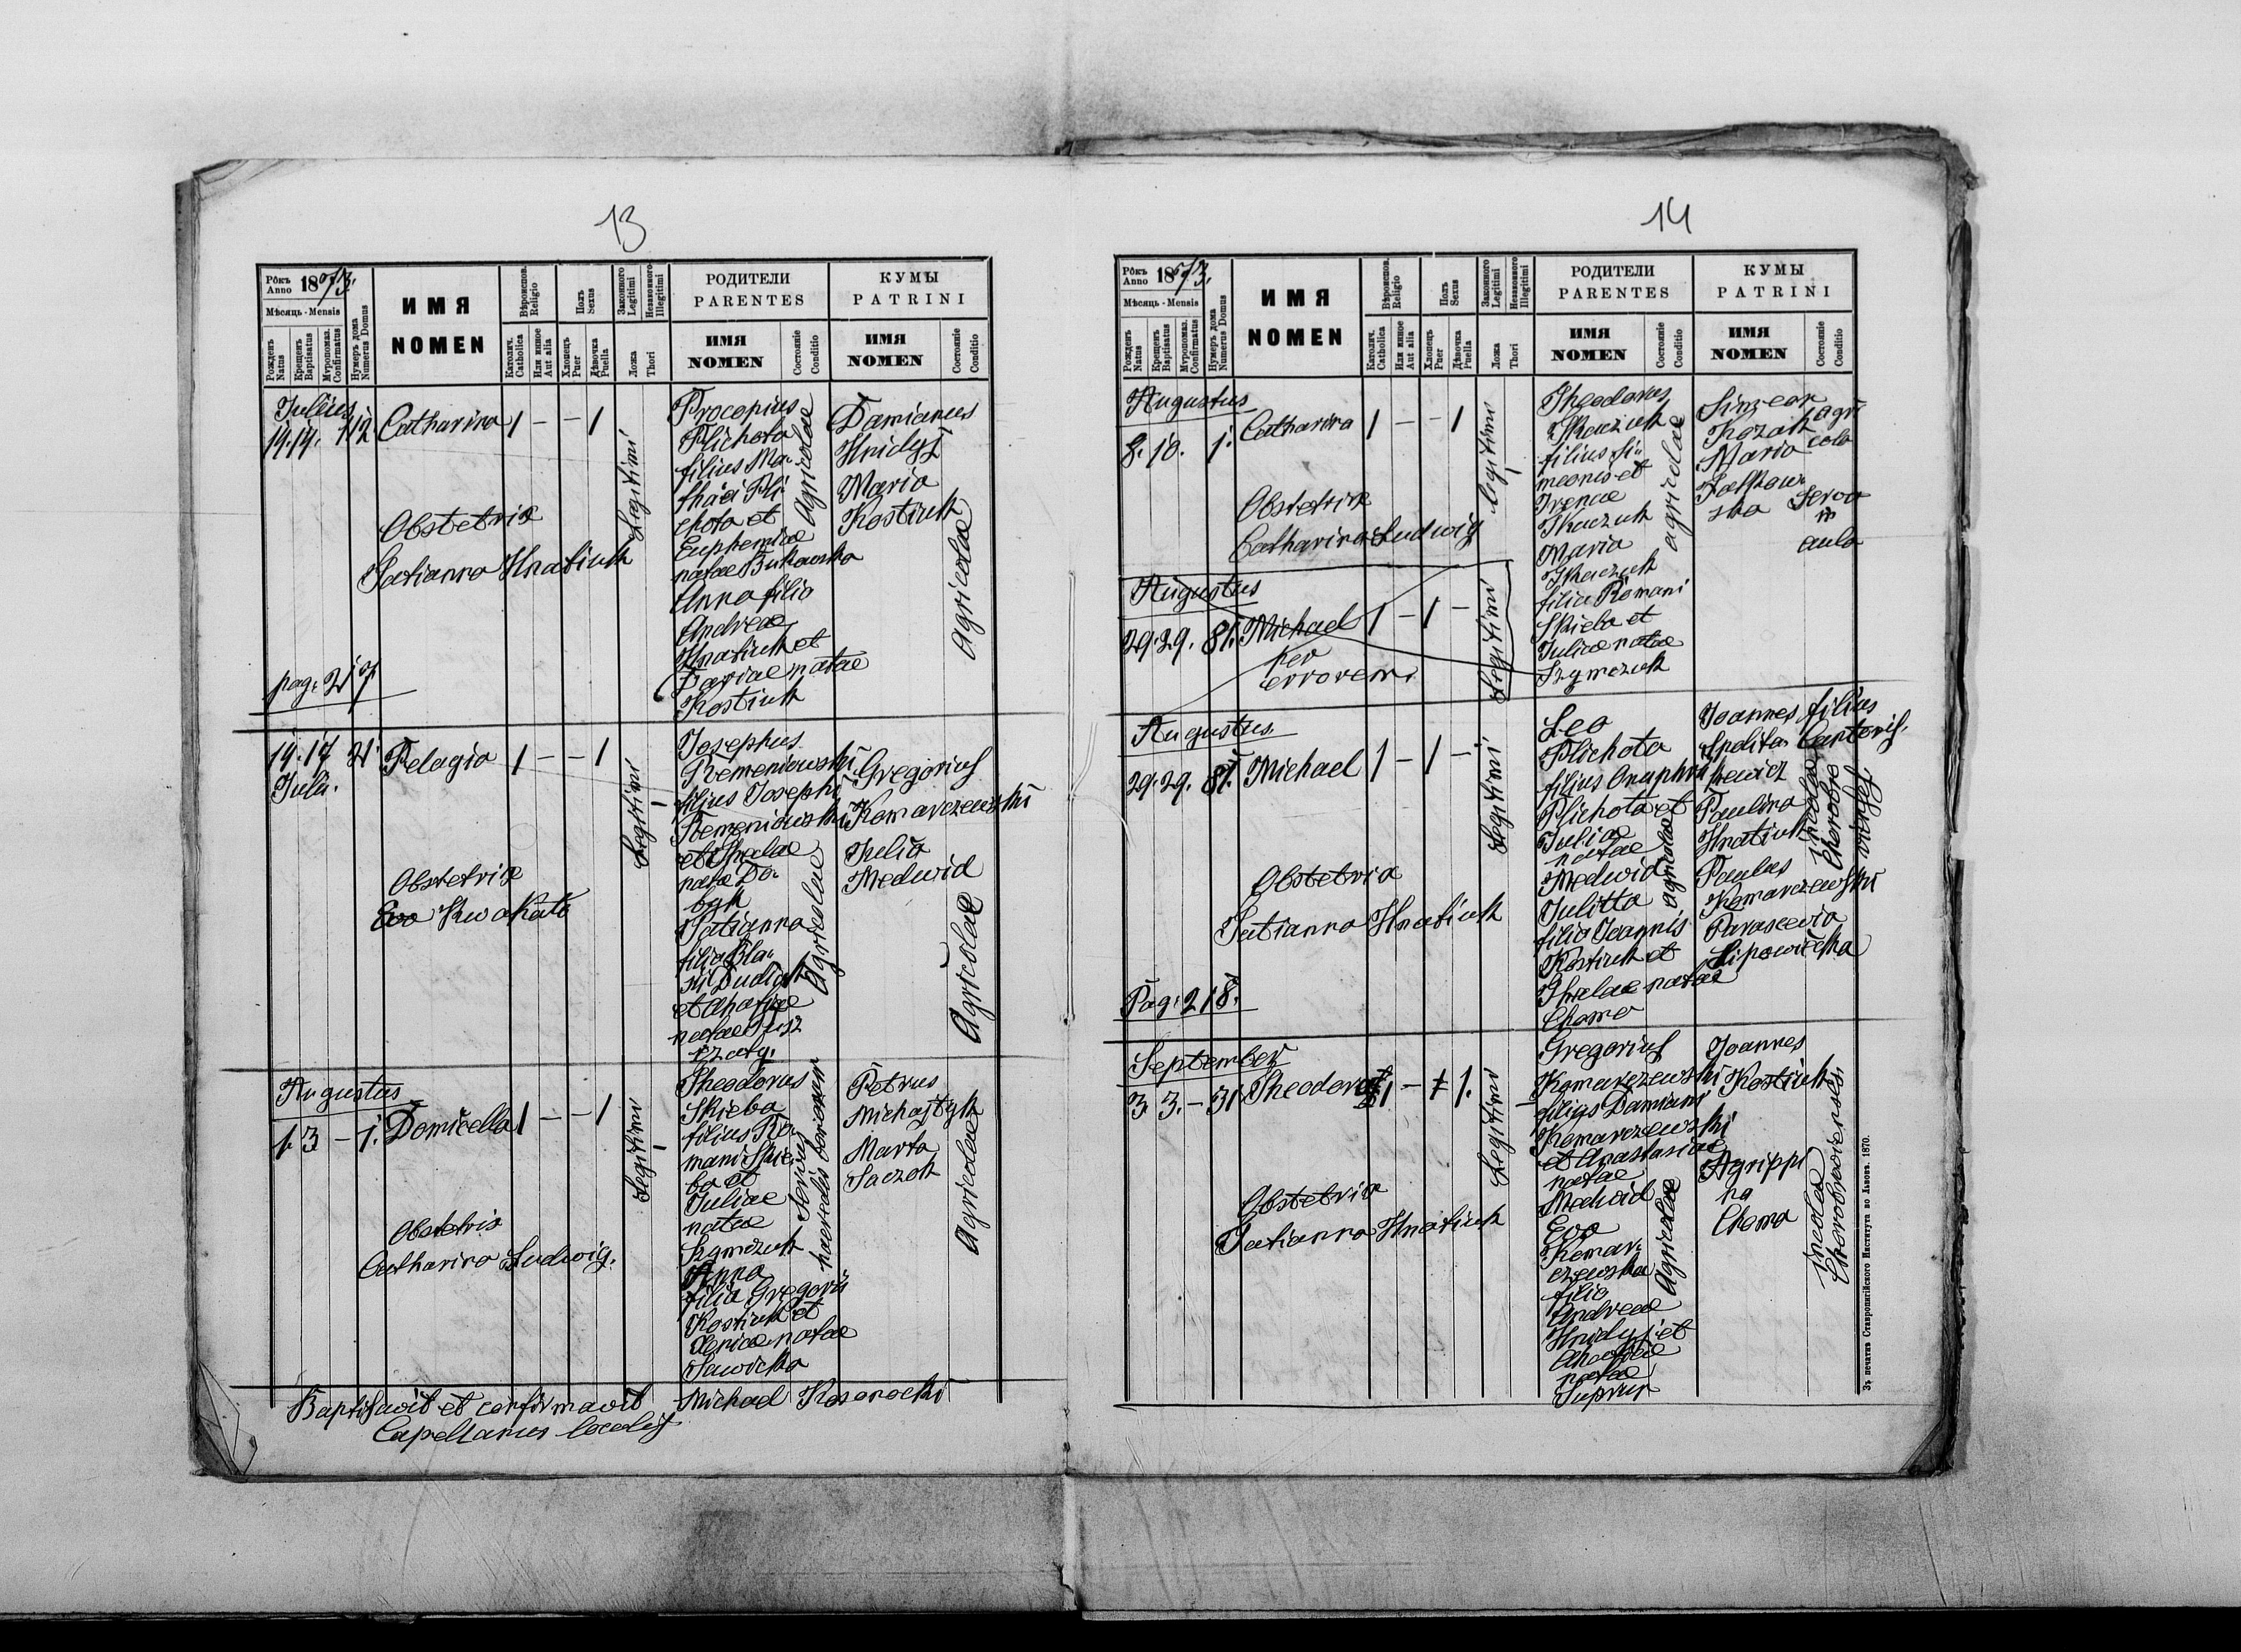 13
Рôкъ
Anno 1873.
Мѣсяць - Mensis
Рожденъ
Natus
Крещенъ
Baptisatus
Мѵропомаз.
Confirmatus
Нумеръ дома
Numerus Domus
ИМЯ
NOMEN
Вѣроиспов.
Religio
Католич.
Catholica
Или инное
Aut alia
Полъ
Sexus
Хлопець
Puer
Дѣвочка
Puella
Законного
Legitimi
Незаконного
Illegitimi
Ложа
Thori
РОДИТЕЛИ
PARENTES
ИМЯ
NOMEN
Состояніе
Conditio
КУМЫ
PATRINI
ИМЯ
NOMEN
Состояніе
Conditio
Julius
14. 14. 112
Catharina 1 – – 1
Legitimi
Procopius
Plichota
filius Ma-
thäi Pli
chota et
Euphemiae
natae Bukowska
Anna filia
Andreae
Hnatiuk et
Dariae natae
Kostiuk
Agricolae
Damianus
Hnidyj
Maria
Kostiuk
Agricolae
Obstetrix
Tatianna Hnatiuk
pag. 217
14. 17 21
Julii.
Pelagia 1 – – 1
Legitimi
Josephus
Remeniowski
filius Josephi
Remeniowski
et Theclae
natae Do-
Tatianna
filia Bla-
sii Dudiak
et Anastasiae
natae
Agricolae
Gregorius
Komarczewski
Julia
Medwid
Agricolae
Obstetrix
Eva Kwakato
Augustus
1. 3 – 1. Domicella 1 – – 1
Legitimi
Theodorus
Skieba
filius Ro-
mani Skie-
ba et
Juliae
natae
Szymczuk
Anna
filia Gregorii
Kostiuk et
Xeniae natae
Sawicka
Servus
haeredis bonorum
Petrus
Michajtyk
Marta
Saczok
Agricolae
Obstetrix
Catharina Ludwig.
Baptisavit et confirmavit Michael Kosonocki
Capellanus localis
14
Рôкъ
Anno 1873.
Мѣсяць - Mensis
Рожденъ
Natus
Крещенъ
Baptisatus
Мѵропомаз.
Confirmatus
Нумеръ дома
Numerus Domus
ИМЯ
NOMEN
Вѣроиспов.
Religio
Католич.
Catholica
Или инное
Aut alia
Полъ
Sexus
Хлопець
Puer
Дѣвочка
Puella
Законного
Legitimi
Незаконного
Illegitimi
Ложа
Thori
РОДИТЕЛИ
PARENTES
ИМЯ
NOMEN
Состояніе
Conditio
КУМЫ
PATRINI
ИМЯ
NOMEN
Состояніе
Conditio
Augustus
8. 10. 1. Catharina 1 – – 1
legitimi
Theodorus
Tkaczuk
filius Si-
meonis et
Irenae
Tkaczuk
Maria
Tkaczuk
filia Romani
Skieba et
Juliae natae
Szymczuk
agricolae
Simeon
Kozak
Maria
ska
agri
cola
Serva
in
aula
Obstetrix
Catharina Ludwig
Augustus
29. 29. 81. Michael 1 – 1 –
Legitimi
per
errorem.
Augustus
29. 29. 81. Michael 1 – 1 –
Legitimi
Leo
Plichota
filius Onuphrii
Plichota et
Juliae
natae
Medwid
Julitta
filia Joannis
Kostiuk et
Theclae natae
Choma
agricolae
Joannes filius
Spolita- Cantoris.
kewicz
Paulina
Hnatiuk
Paulus
Komarczewski
Parascevia
Lipowiecka
Incolae
Chorobro
vienses
Obstetrix
Tatianna Hnatiuk
Pag. 218.
September
3. 3. – 31 Theodora 1 – ‡ 1.
Legitimi
Gregorius
Komarczewski
filius Damiani
Komarczewski
et Anastasiae
natae
Medwid
Eva
Komar-
czewska
filia
Andreae
Hnidyj et
Anastasiae
natae
Suprun
Agricolae
Joannes
Kostiuk
Agrippi
na
Choma
Incolae
Chorobrovienses.
Obstetrix
Tatianna Hnatiuk
Зъ печатнѣ Ставропигійского Института во Львовѣ. 1870.